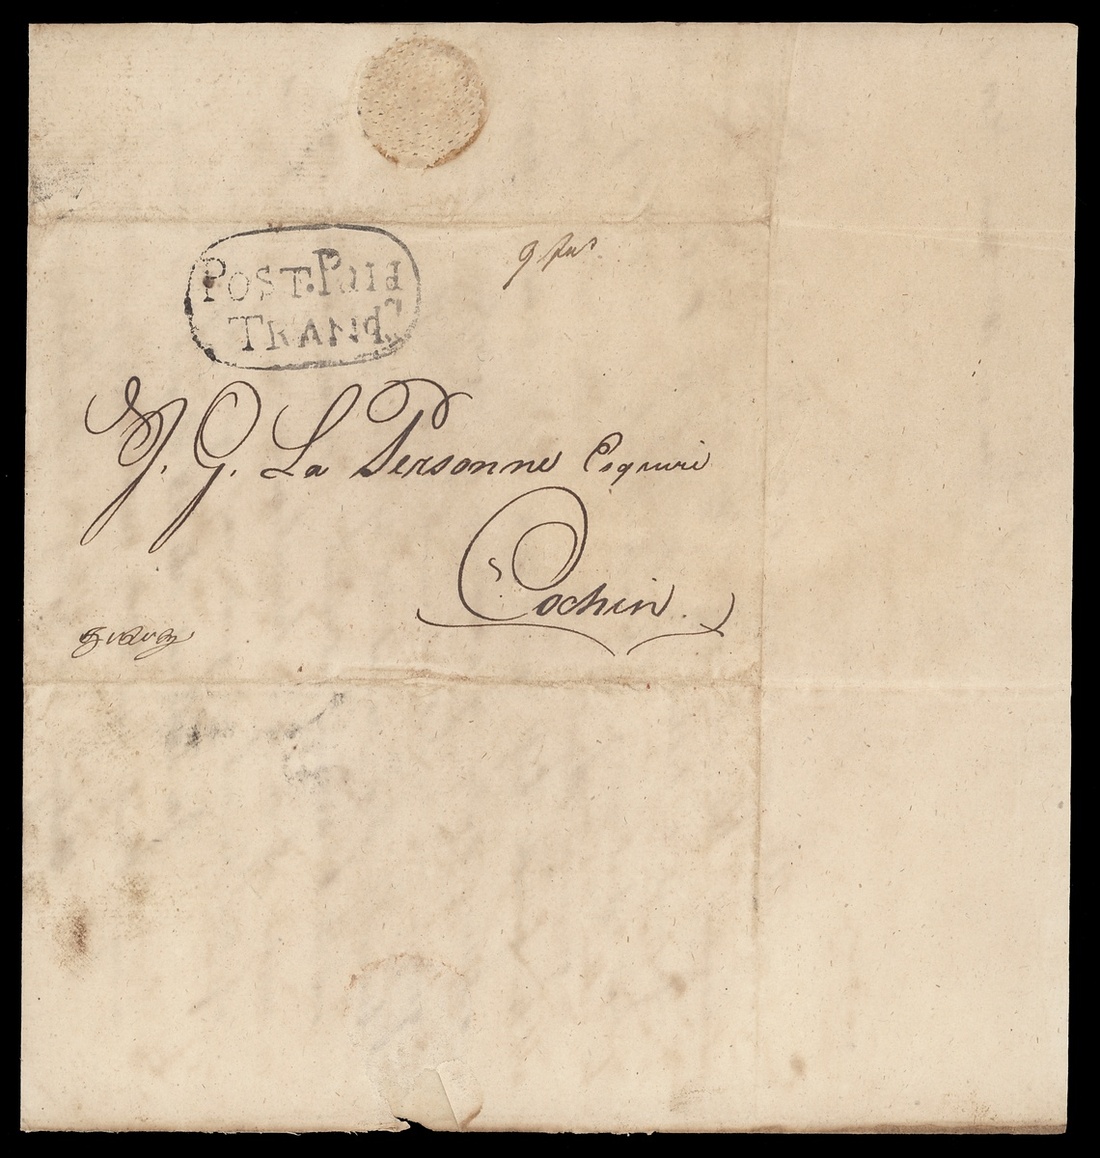 POST.PAID
TRANQ.
J. G. La Personne Esquire
Cochin